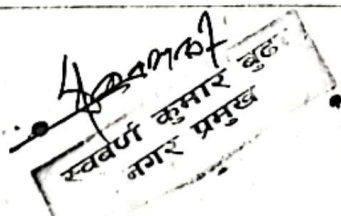 स्ववर्ण कुमार बुढ
नगर प्रमुख